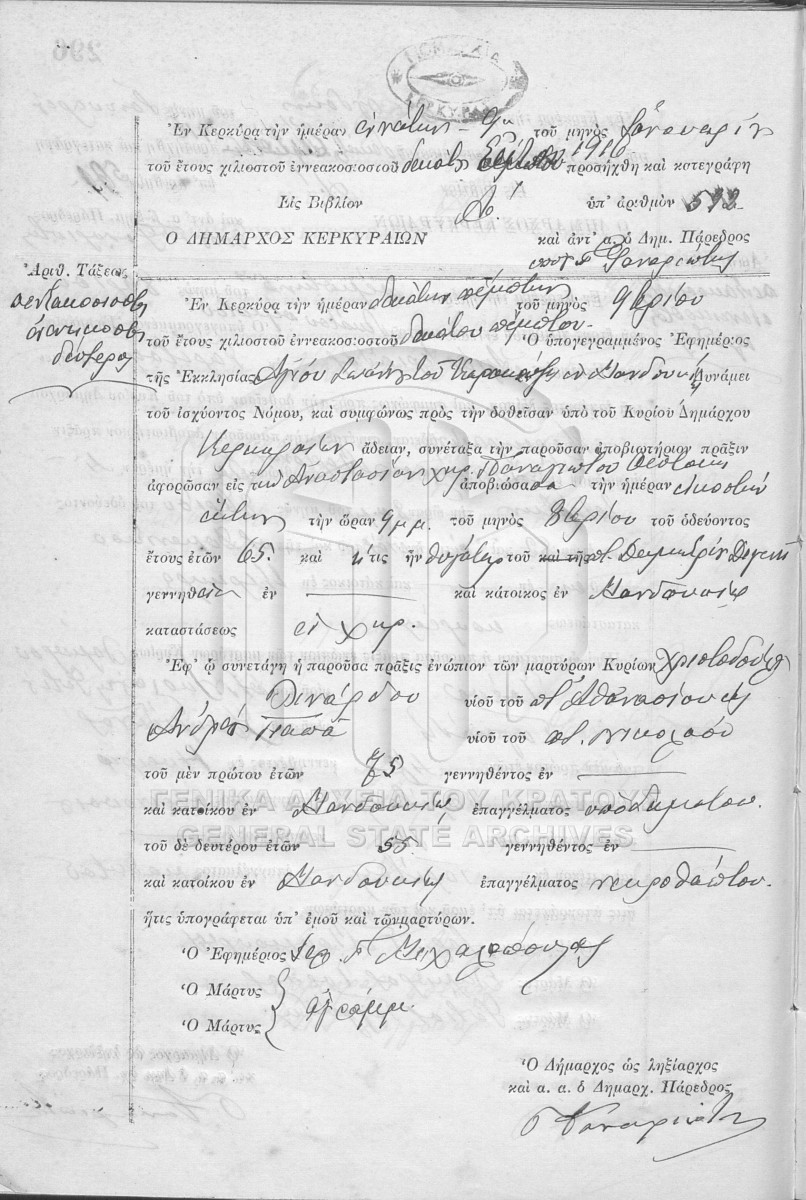 ΚΕΡΚΥΡΑ
Ἐν Κερκύρᾳ τὴν ἡμέραν ἐννάτην - 9ην τοῦ μηνὸς Ἰανουαρίου
τοῦ ἔτους χιλιοστοῦ ἐννεακοσιοστοῦ δεκάτου 1916 προσήχθη καὶ κατεγράφη
Εἰς Βιβλίον Α' ὑπ' ἀριθμὸν 592
Ο ΔΗΜΑΡΧΟΣ ΚΕΡΚΥΡΑΙΩΝ καὶ ἀντ' α. ὁ Δημ. Πάρεδρος
Ἀριθ. Τάξεως
πεντακοσιοστὴ
ἐνενηκοστὴ
δευτέρα
Ἐν Κερκύρᾳ τὴν ἡμέραν δεκάτην πέμπτην τοῦ μηνὸς 9βρίου
τοῦ ἔτους χιλιοστοῦ ἐννεακοσιοστοῦ δεκάτου πέμπτου - Ὁ ὑπογεγραμμένος Ἐφημέριος
τῆς Ἐκκλησίας Ἁγίου ἐν Μανδουκίῳ Δυνάμει
τοῦ ἰσχύοντος Νόμου, καὶ συμφώνως πρὸς τὴν δοθεῖσαν ὑπὸ τοῦ Κυρίου Δημάρχου
Κερκυραίων ἄδειαν, συνέταξα τὴν παροῦσαν ἀποβιωτήριον πρᾶξιν
ἀφορῶσαν εἰς τὴν Ἀναστασίαν χηρ. Παναγιώτου ἀποβιώσασα τὴν ἡμέραν εἰκοστὴν
ἕκτην τὴν ὥραν 9 μμ. τοῦ μηνὸς 8βρίου τοῦ ὁδεύοντος
ἔτους ἐτῶν 65. καὶ ἥτις ἦν θυγάτηρ τοῦ καὶ τῆς π. Δημητρίου
γεννηθεῖσα ἐν καὶ κάτοικος ἐν Μανδουκίῳ
καταστάσεως ἐν χηρ.
Ἐφ' ᾧ συνετάγη ἡ παροῦσα πρᾶξις ἐνώπιον τῶν μαρτύρων Κυρίων Χριστοδούλου
Λινάρδου υἱοῦ τοῦ π. Ἀθανασίου
Ἀνδρέα Παπᾶ υἱοῦ τοῦ π. Νικολάου
τοῦ μὲν πρώτου ἐτῶν 75 γεννηθέντος ἐν
καὶ κατοίκου ἐν Μανδουκίῳ ἐπαγγέλματος ὑποδηματοπ.
τοῦ δὲ δευτέρου ἐτῶν 55 γεννηθέντος ἐν
καὶ κατοίκου ἐν Μανδουκίῳ ἐπαγγέλματος νεκροθάπτου.
ἥτις ὑπογράφεται ὑπ' ἐμοῦ καὶ τῶν μαρτύρων.
Ὁ Ἐφημέριος Ἱερ. Γ. Μιχαλόπουλος
Ὁ Μάρτυς
Ὁ Μάρτυς
ἀγράμμ.
Ὁ Δήμαρχος ὡς ληξίαρχος
καὶ α. α. ὁ Δημαρχ. Πάρεδρος
ΓΕΝΙΚΑ ΑΡΧΕΙΑ ΤΟΥ ΚΡΑΤΟΥΣ
GENERAL STATE ARCHIVES